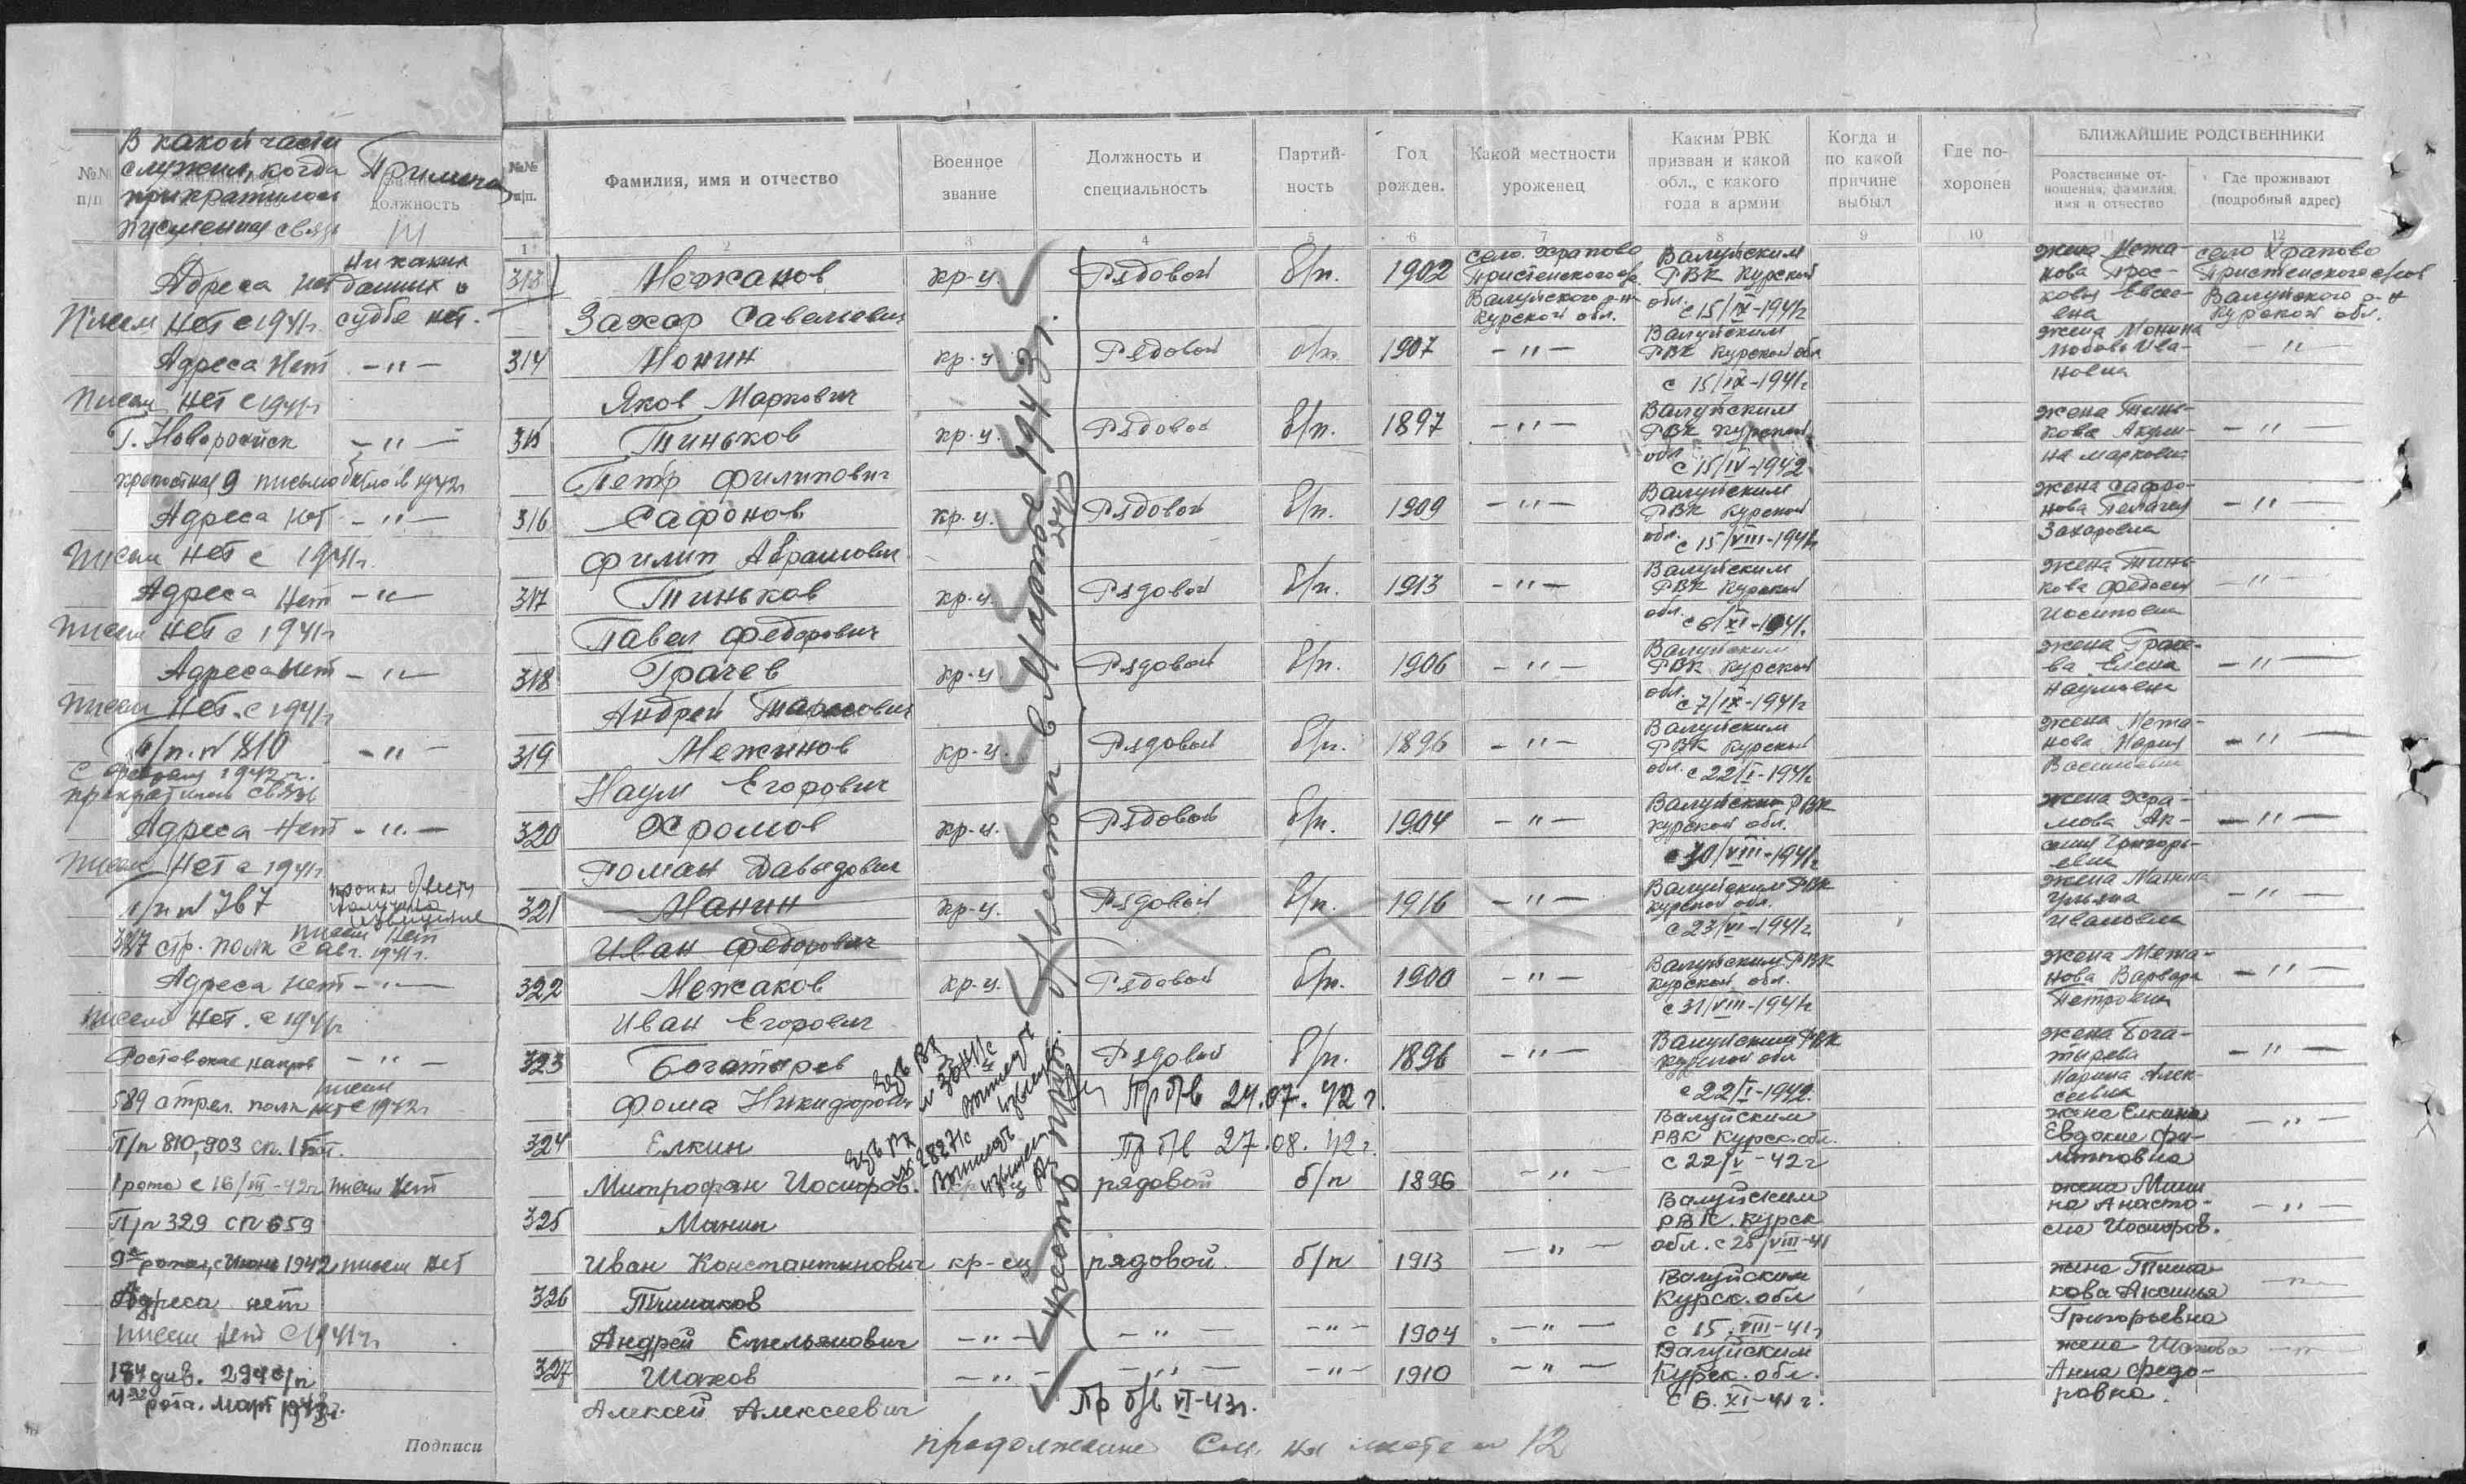 В какой части
служил, когда
прекратилась
письменная связь
Примеча
№№ п/п
должность
14
№№ п/п.
Фамилия, имя и отчество
Военное звание
Должность и специальность
Партийность
Год рожден.
Какой местности уроженец
Каким РВК призван и какой обл., с какого года в армии
Когда и по какой причине выбыл
Где похоронен
БЛИЖАЙШИЕ РОДСТВЕННИКИ
Родственные отношения, фамилия, имя и отчество
Где проживают (подробный адрес)
1 2 3 4 5 6 7 8 9 10 11 12
Адреса нет
Писем нет с 1941г.
Никаких данных о судьбе нет.
313 Межаков
Захар Савельевич
кр-ц. Рядовой б/п. 1902
село Храпово
Пристенского с/с.
Валуйского р-н
Курской обл.
Валуйским
РВК Курской
обл. с 15/IX-1941г
жена Межакова Прасковья Евсеевна
село Храпово
Пристенского с/сов
Валуйского р-н
Курской обл.
Адреса нет - " -
Писем нет с 1941г
314 Монин
Яков Маркович
кр-ц. Рядовой б/п. 1907 - " -
Валуйским
РВК Курской обл
с 15/IX-1941г
жена Монина
Любовь Ивановна - " -
Г. Новоросийск - " -
крепостная 9 письмо было в 1942г
315 Тиньков
Петр Филипович
кр-ц. Рядовой б/п. 1897 - " -
Валуйским
РВК Курской
обл. с 15/IV-1942
жена Тинькова Акулина Марковна - " -
Адреса нет - " -
Писем нет с 1941г.
316 Сафонов
Филип Абрамович
кр-ц. Рядовой б/п. 1909 - " -
Валуйским
РВК Курской
обл. с 15/VIII-1941г
жена Сафонова Пелагея
Захаровна - " -
Адреса нет - " -
Писем нет с 1941г
317 Тиньков
Павел Федорович
кр-ц. Рядовой б/п. 1913 - " -
Валуйским
РВК Курской
обл. с 6/XI-1941.
жена Тинькова Федосия
Иосиповна - " -
Адреса нет - " -
Писем нет. с 1941г
318 Грачев
Андрей Тарасович
кр-ц. Рядовой б/п. 1906 - " -
Валуйским
РВК Курской
обл. с 7/IX-1941г
жена Грачева Елена
Наумовна - " -
п/п. № 810 - " -
с февраля 1942 г.
прекратилась связь
319 Межинов
Наум Егорович
кр-ц. Рядовой б/п. 1896 - " -
Валуйским
РВК Курской
обл. с 22/I-1941г
жена Межанова Мария
Васильевна - " -
Адреса нет - " -
Писем нет с 1941г.
320 Хромов
Роман Давыдович
кр-ц. Рядовой б/п. 1904 - " -
Валуйским РВК
Курской обл.
с 30/VIII-1941г
жена Храмова Аксиния Григорьевна - " -
п/п № 767
пропал безвести
получено
извещение
387 стр. полк писем нет
с авг. 1941г.
321 Манин
Иван Федорович
кр-ц. Рядовой б/п. 1916 - " -
Валуйским РВК
Курской обл.
с 23/VI-1941г
жена Манина
Ульяна
Ивановна - " -
Адреса нет - " -
Писем нет. с 1941г
322 Межаков
Иван Егорович
кр-ц. Рядовой б/п. 1900 - " -
Валуйским РВК
Курской обл.
с 31/VIII-1941г
жена Межанова Варвара
Петровна - " -
Ростовское направ - " -
589 стрел. полк писем нет с 1942г
323 Богатырев
Фома Никифорович
Рядовой б/п. 1896 - " -
Пр б/в 24.07.42г.
Валуйским РВК
Курской обл
с 22/I-1942.
жена Богатырева
Марина Алексеевна - " -
П/п 810, 903 сп. 1 бат.
1 рота с 16/VII-42г писем нет
324 Елкин
Митрофан Иосифов.
Пр б/в 27.08.42г.
рядовой б/п 1896 - " -
Валуйским
РВК Курск. обл.
с 22/V-42г
жена Елкина
Евдокия Филипповна - " -
П/п 329 сп 659
9я рота, с июня 1942 писем нет
325 Манин
Иван Константинович кр-ец рядовой. б/п 1913 - " -
Валуйским
РВК. Курск
обл. с 25/VIII-41
жена Манина Анастасия Иосифов. - " -
Адреса нет
писем нет с 1941г
326 Тимаков
Андрей Емельянович - " - - " - - " - 1904 - " -
Валуйским
Курск. обл
с 15.VIII-41г
жена Тимакова Аксинья
Григорьевна - " -
184 див. 294 с/п
4ая рота. Март 1943г.
327 Шахов
Алексей Алексеевич
- " - - " - - " - 1910 - " -
Пр б/в VI-43г.
Валуйским
Курск. обл.
с 6.XI-41г.
жена Шахова
Анна Федоровна. - " -
Учтены в Марте 1943г.
Подписи
продолжение См. на листе № 12